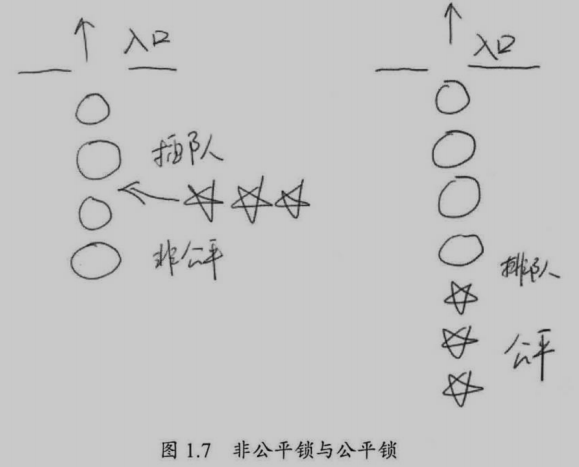 入口
入口
插队
非公平
排队
公平
图 1.7 非公平锁与公平锁